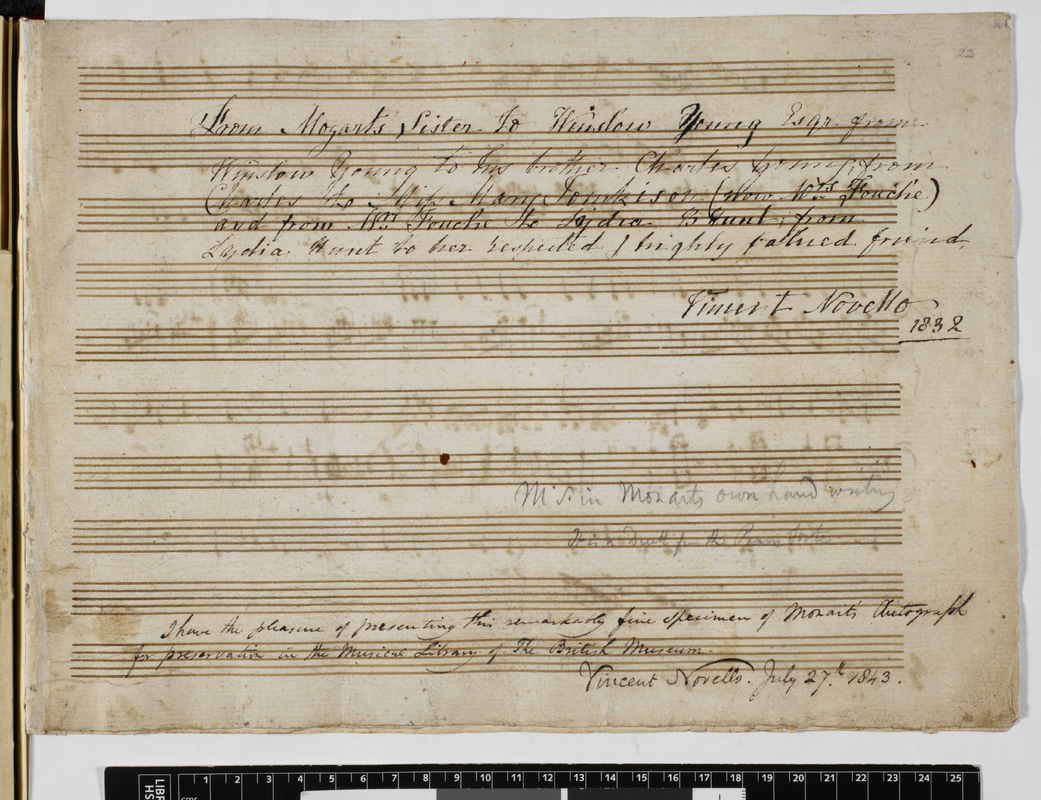 22
From Mozarts Sister to Winslow Young Esqr. from
Winslow Young to his brother Charles Young, from
Charles to Miss Mary Tomkison (now Mrs. Fouché)
and from Mrs. Fouché to Lydia B. Hunt, from
Lydia Hunt to her respected & highly valued friend,
Vincent Novello
1832
M.S. in Mozarts own hand writing
It is a Duett for the Piano Forte
I have the pleasure of presenting this remarkably fine specimen of Mozart's Autograph
for preservation in the Musical Library of The British Museum.
Vincent Novello. July 27th. 1843.
cms 1 2 3 4 5 6 7 8 9 10 11 12 13 14 15 16 17 18 19 20 21 22 23 24 25